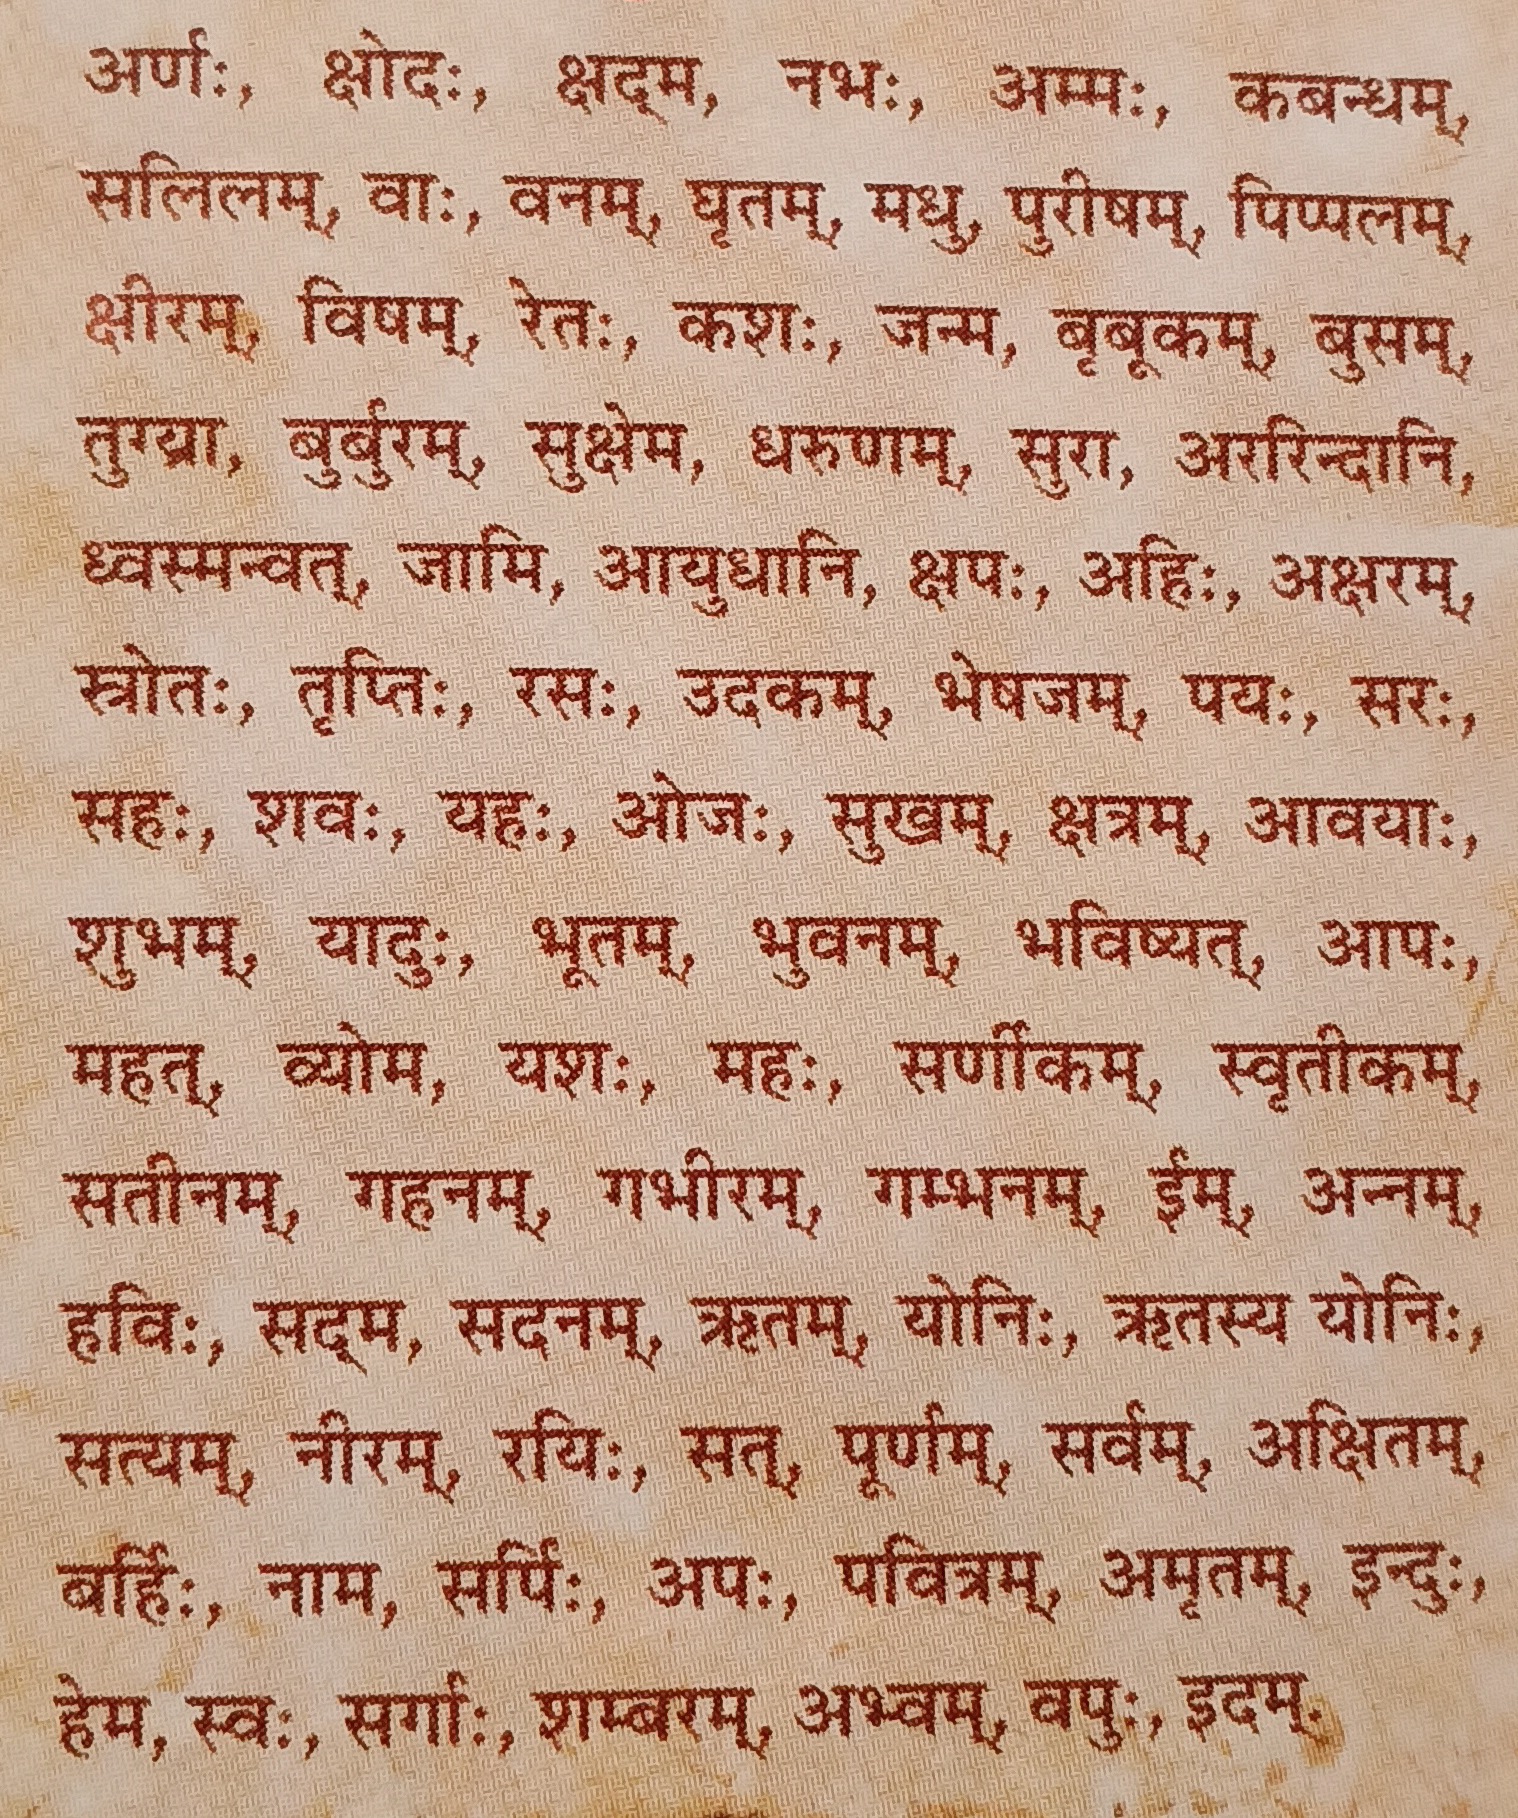 अर्णः, क्षोदः, क्षद्म, नभः, अम्मः, कबन्धम्,
सलिलम्, वाः, वनम्, घृतम्, मधु, पुरीषम्, पिप्पलम्,
क्षीरम्, विषम्, रेतः, कशः, जन्म, बृबूकम्, बुसम्,
तुग्य्रा, बुर्बुरम्, सुक्षेम, धरुणम्, सुरा, अररिन्दानि,
ध्वस्मन्वत्, जामि, आयुधानि, क्षपः, अहिः, अक्षरम्,
स्त्रोतः, तृप्तिः, रसः, उदकम्, भेषजम्, पयः, सरः,
सहः, शवः, यहः, ओजः, सुखम्, क्षत्रम्, आवयाः,
शुभम्, यादुः, भूतम्, भुवनम्, भविष्यत्, आपः,
महत्, व्योम, यशः, महः, सर्णीकम्, स्वृतीकम्,
सतीनम्, गहनम्, गभीरम्, गम्भनम्, ईम्, अन्नम्,
हविः, सद्म, सदनम्, ऋतम्, योनिः, ऋतस्य योनिः,
सत्यम्, नीरम्, रयिः, सत्, पूर्णम्, सर्वम्, अक्षितम्,
बर्हिः, नाम, सर्पिः, अपः, पवित्रम्, अमृतम्, इन्दुः,
हेम, स्वः, सर्गाः, शम्बरम्, अभ्वम्, वपुः, इदम्.